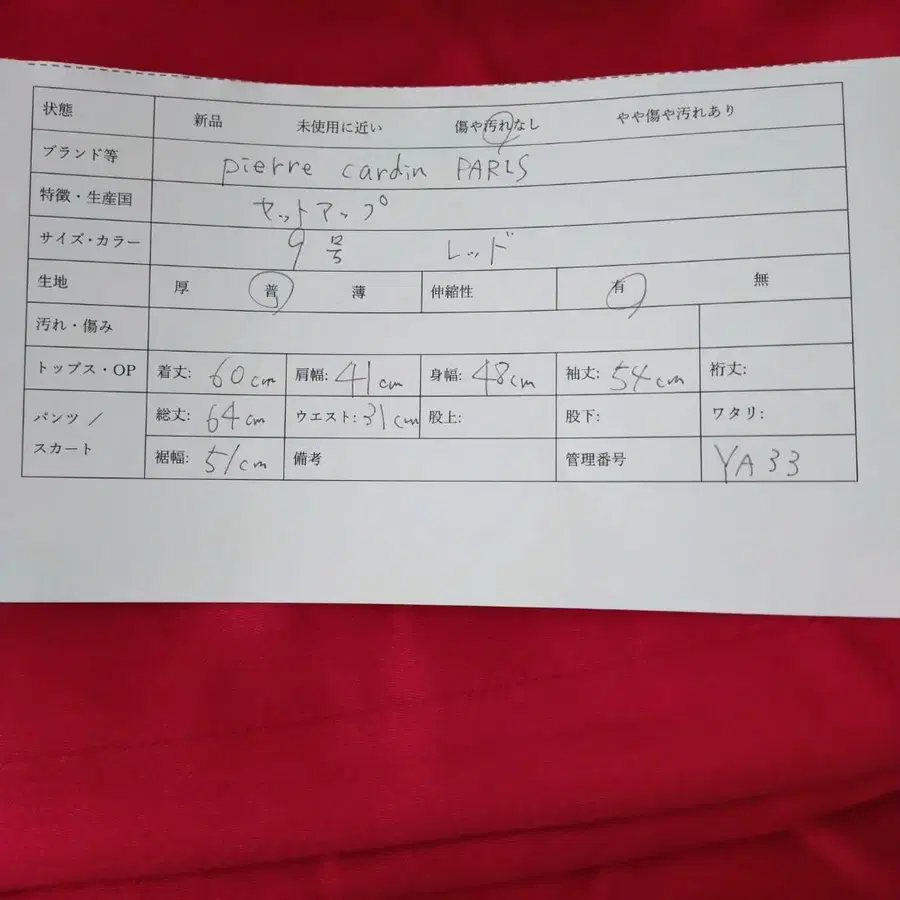 状態 新品 未使用に近い 傷や汚れなし やや傷や汚れあり
ブランド等 pierre cardin PARIS
特徴・生産国 セットアップ
サイズ・カラー 9号 レッド
生地 厚 普 薄 伸縮性 有 無
汚れ・傷み
トップス・OP 着丈: 60cm 肩幅: 41cm 身幅: 48cm 袖丈: 54cm 裄丈:
パンツ / スカート 総丈: 64cm ウエスト: 31cm 股上: 股下: ワタリ:
裾幅: 51cm 備考 管理番号 YA33